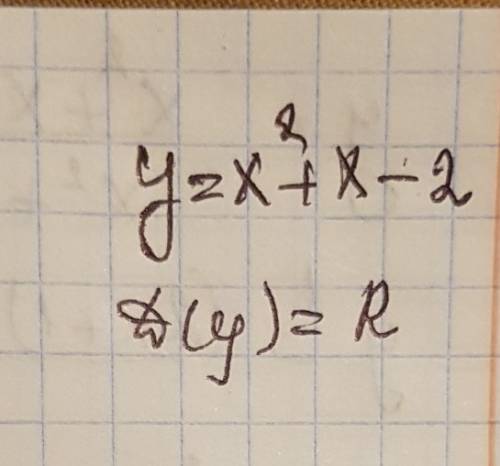 y = x² + x - 2
D(y) = R